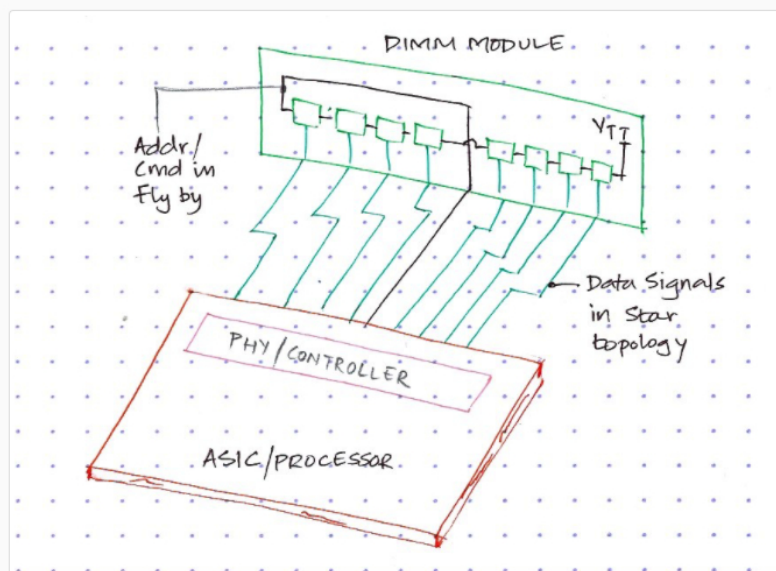 DIMM MODULE
VTT
Addr/
Cmd in
Fly by
Data Signals
in Star
topology
PHY/CONTROLLER
ASIC/PROCESSOR